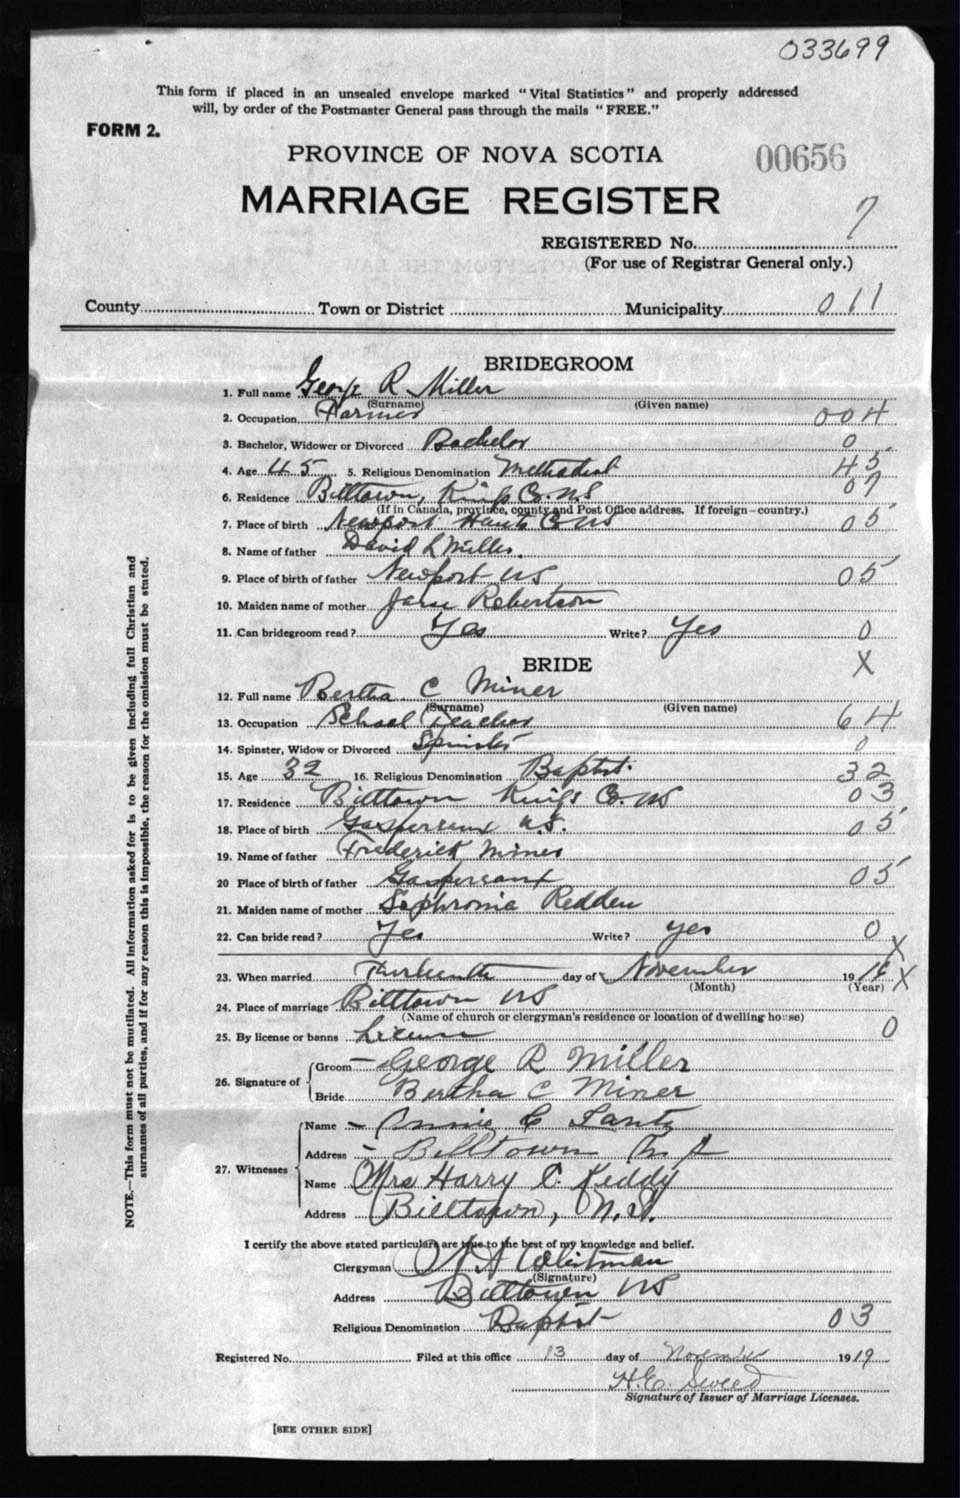 033699
This form if placed in an unsealed envelope marked "Vital Statistics" and properly addressed
will, by order of the Postmaster General pass through the mails "FREE."
FORM 2.
PROVINCE OF NOVA SCOTIA
00656
MARRIAGE REGISTER
REGISTERED No. 7
(For use of Registrar General only.)
County Town or District Municipality 011
BRIDEGROOM
1. Full name George R Miller
(Surname) (Given name)
2. Occupation Farmer 004
3. Bachelor, Widower or Divorced Bachelor 0
4. Age 45 5. Religious Denomination Methodist 45
6. Residence Billtown, Kings Co. N.S 07
(If in Canada, province, county and Post Office address. If foreign—country.)
7. Place of birth Newport Hants Co NS 05
8. Name of father David L Miller.
9. Place of birth of father Newport NS 05
10. Maiden name of mother Jane Robertson
11. Can bridegroom read? Yes Write? Yes 0
X
BRIDE
12. Full name Bertha C Miner
(Surname) (Given name)
13. Occupation School Teacher 64
14. Spinster, Widow or Divorced Spinster 0
15. Age 32 16. Religious Denomination Baptist. 32
17. Residence Billtown Kings Co. NS 03
18. Place of birth Gaspereaux N.S. 05
19. Name of father Frederick Miner
20 Place of birth of father Gaspereaux 05
21. Maiden name of mother Sophronia Redden
22. Can bride read? Yes Write? yes 0
X
23. When married Thirteenth day of November 19 X
(Month) (Year)
24. Place of marriage Billtown NS
(Name of church or clergyman's residence or location of dwelling house)
25. By license or banns License 0
26. Signature of Groom George R Miller
Bride Bertha C Miner
27. Witnesses Name Annie C Lantz
Address Billtown N S
Name Mrs Harry C. Keddy
Address Billtown, N.S.
I certify the above stated particulars are true to the best of my knowledge and belief.
Clergyman Whitman
(Signature)
Address Billtown NS
Religious Denomination Baptist 03
Registered No. Filed at this office 13 day of November 1919
H.E.
Signature of Issuer of Marriage Licenses.
[SEE OTHER SIDE]
NOTE.—This form must not be mutilated. All information asked for is to be given including full Christian and
surnames of all parties, and if for any reason this is impossible, the reason for the omission must be stated.